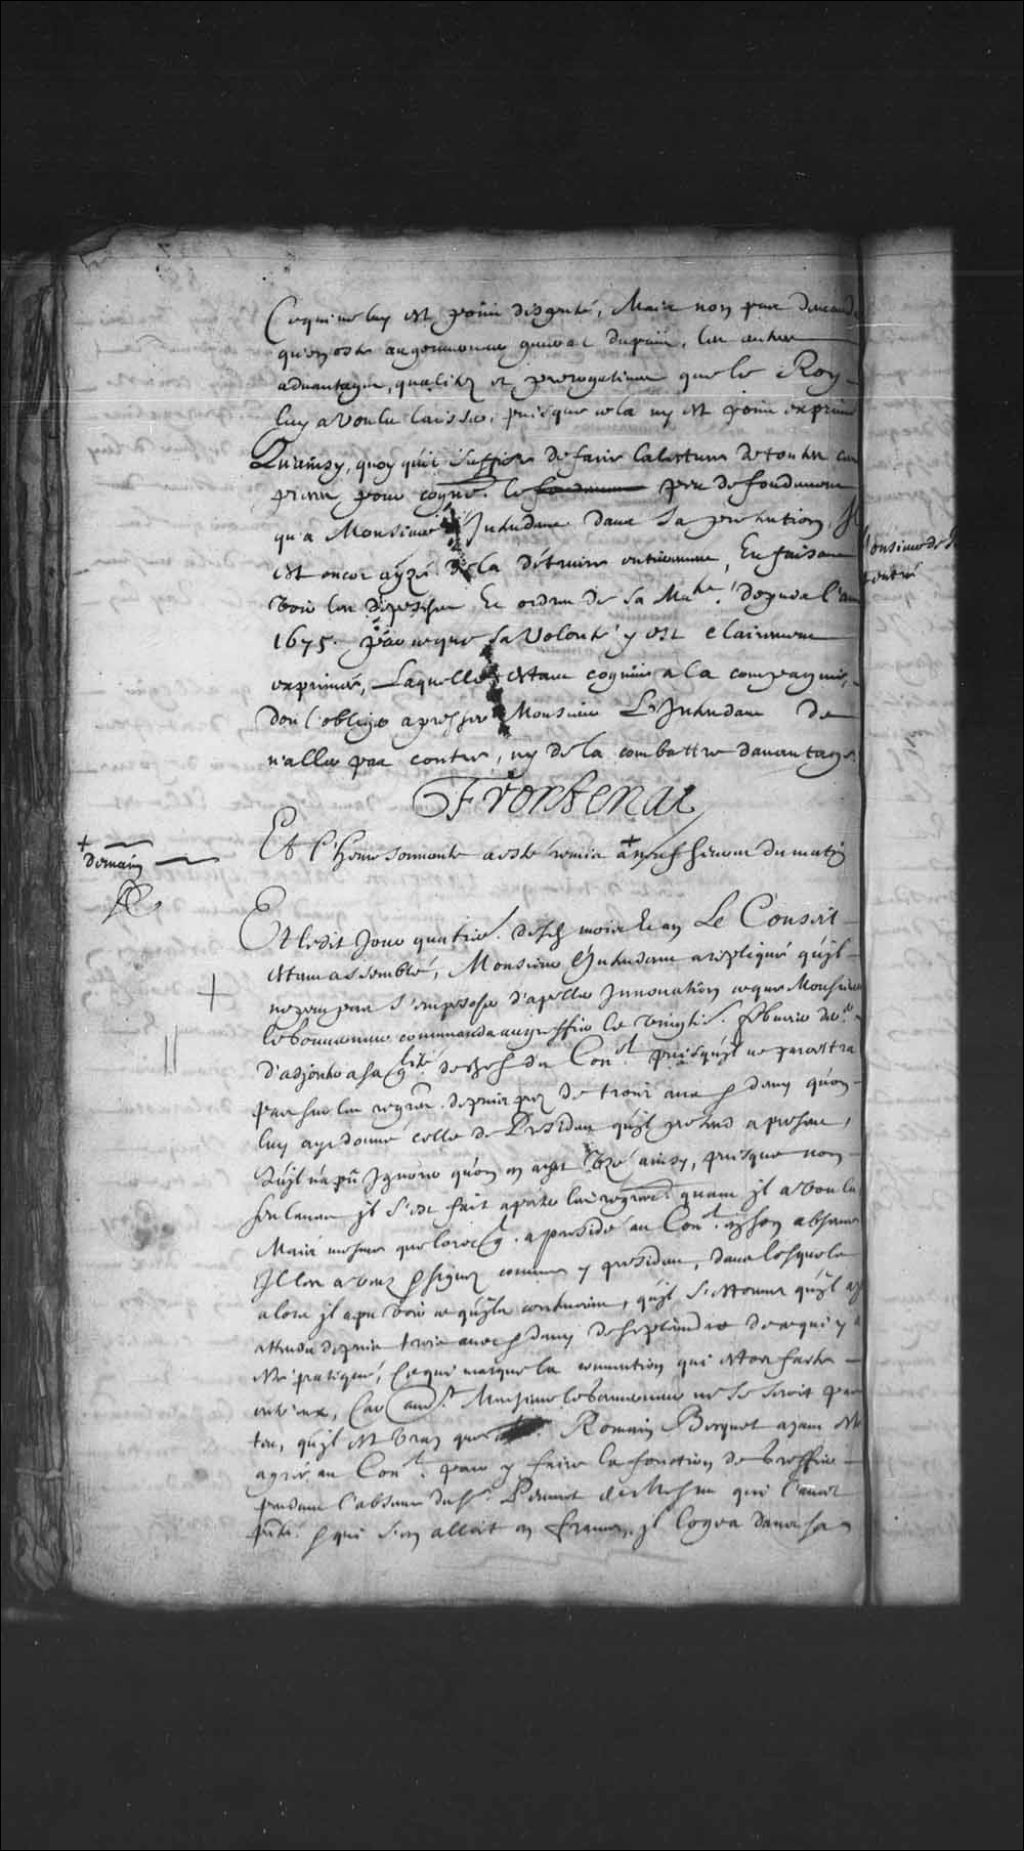 Ce qui ne luy est point disputé, Mais non pas
qu'on oste au gouverneur general du païs, les autres
advantages, qualitez et prerogatives que le Roy
luy a voulu laisser, puisque cela n'y est point exprimé
Qu'ainsy, quoy qu'il suffise de faire la lecture de toutes ces
pieces pour le peu de fondement
qu'a Monsieur Intendant dans sa pretention, Il
est encor aysé de la détruire entierement, En faisant
voir les depesches Et ordres de sa Maté. depuis l'an
1675. par ce que sa volonté y est clairement
exprimée, Laquelle estant cognüe a la compagnie,
doit l'obliger a presser Monsieur L'Intendant de
n'aller pas contre, ny de la combattre davantage.
Frontenac
Et l'heure sonnante a esté remis a neuf heures du matin
+ demain
Et ledit Jour quatrie. desd. mois et an Le Conseil
estant assemblé, Monsieur l'Intendant a repliqué qu'il
ne peut pas s'empescher d'apeller Innovation ce que Monsieur
le Gouverneur commanda au greffier le vingtie. febvrier der.
d'adjouter a sa qlité de chef du Conl. puisqu'il ne paroistra
pas sur les regres. depuis prez de trois ans et demy qu'on
luy aye donné celle de President qu'il pretend a present,
Qu'il n'a pû Ignorer qu'on en ayt uzé ainsy, puisque non
seulement Il s'est fait aporter les regres. quand il a voulu
Mais mesme que lorsq. a presidé au Conl. en son absence
Il les a veuz et signez comme y president, dans lesquels
alors il a pu voir ce qu'ils contenoient, qu'il s'estonne qu'il ay
attendu depuis trois ans et demy de se plaindre de ce qui y a
esté pratiqué, Ce qui marque la convention qui estoit faite
entr'eux, Car aud. Monsieur le Gouverneur ne se seroit pas
teu, qu'il est vray que Romain Becquet ayant esté
agréé au Conl. pour y faire la fonction de Greffier
pendant l'absence du sr. Peuvret de Mesnu qui l'avoit
pnté. et qui s'en alloit en france, Il logea dans sa
Monsieur de
entré